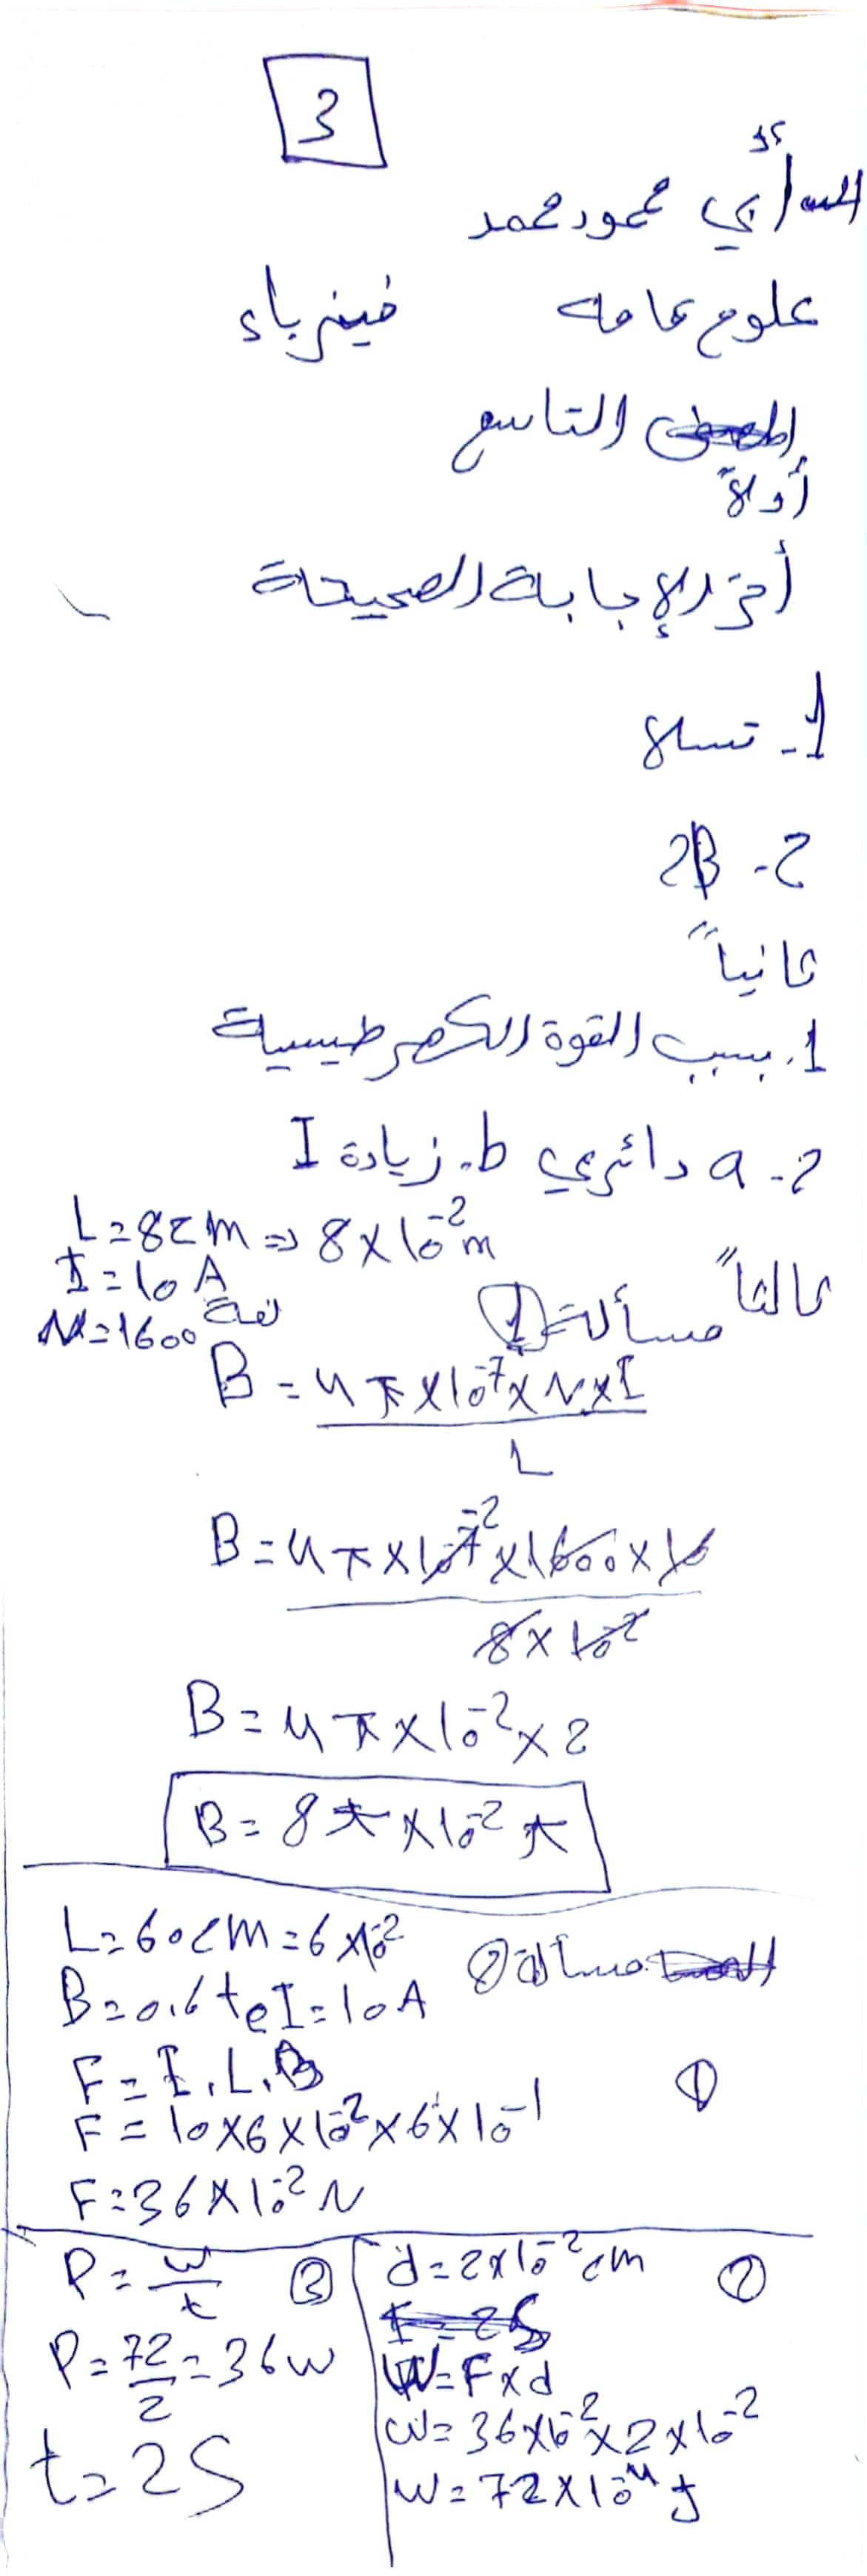 3
أبي محمود محمد
علوم عامه فيزياء
التاسع
أولاً
أختر الإجابة الصحيحة
1- تسلا
2- 2B
ثانياً
1. بسبب القوة الكهرطيسية
2- a دائري b. زيادة I
L=8cm => 8×10^-2 m
I=10 A
N=1600 لفة
ثالثاً
مسألة 1
B = 4π×10^-7×N×I / L
B=4π×10^-7 ^-2 ×1600×10 / 8×10^-2
B=4π×10^-2×2
B=8π×10^-2 T
مسألة 2
L=60cm=6×10^-2
B=0.6 t e I=10A
1
F=I.L.B
F=10×6×10^-2×6×10^-1
F=36×10^-2 N
2
d=2×10^-2 cm
W=F×d
W=36×10^-2×2×10^-2
W=72×10^-4 J
3
P=w/t
P=72/2=36w
t=2S